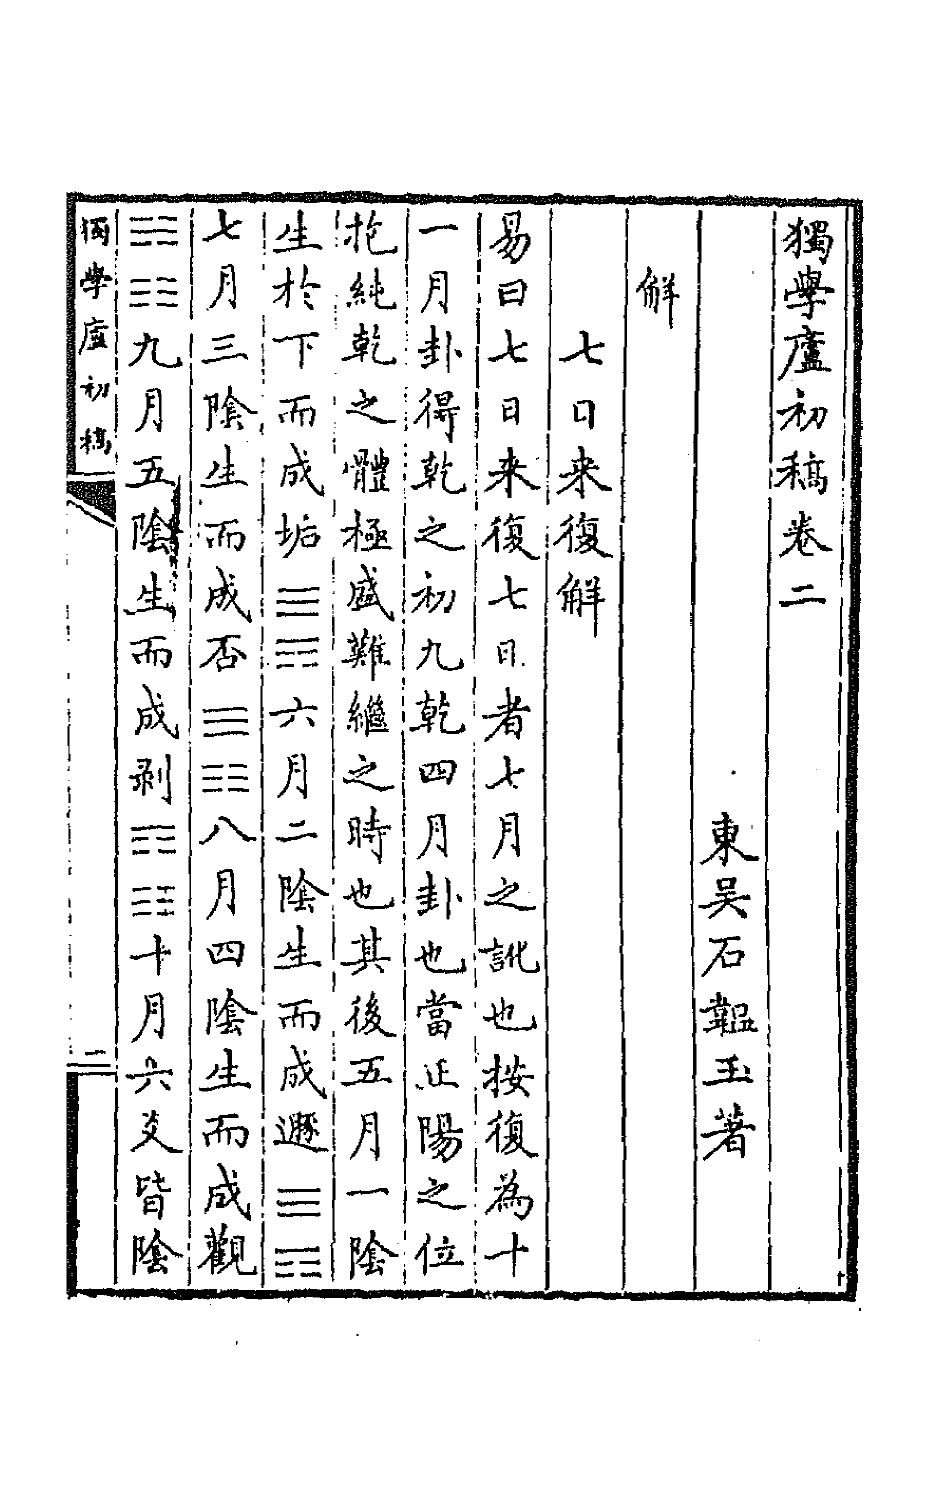 獨學廬初稿卷二
東吴石韞玉著
解
七日来復解
易曰七日来復七日者七月之訛也按復為十
一月卦得乾之初九乾四月卦也當正陽之位
抱純乾之體極盛難繼之時也其後五月一陰
生於下而成垢☰☴六月二陰生而成遯☰☶
七月三陰生而成否☰☷八月四陰生而成觀
☴☷九月五陰生而成剥☶☷十月六爻皆陰
獨學廬初稿
二